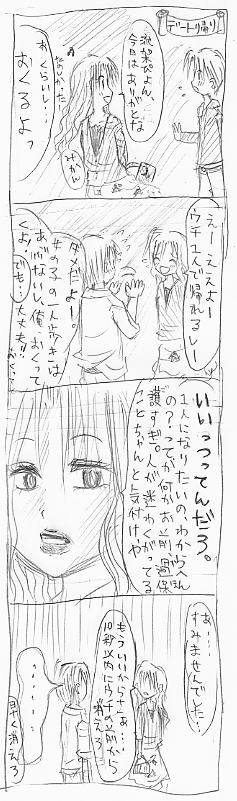 デート帰り
流架ぴよん、
今日はありがとな
みかん
たのしかった
おくらいし…
おくるよっ
えーええよー
ウチ1人で帰れるしー
ダメだよー。
女の子の一人歩きは
あぶないし、俺、おくって
くよ！でも…
大丈夫!!
いいっつってんだろ。
1人になりたいのわからん
の？ってか何かお前過保
護すぎ。人が迷わくがってる
ことちゃんと気付けや
すあ……
すみませんでした…
もういいからさぁ…
10秒以内にウチの前から
消えろ
・・・・・・
早く消えろ